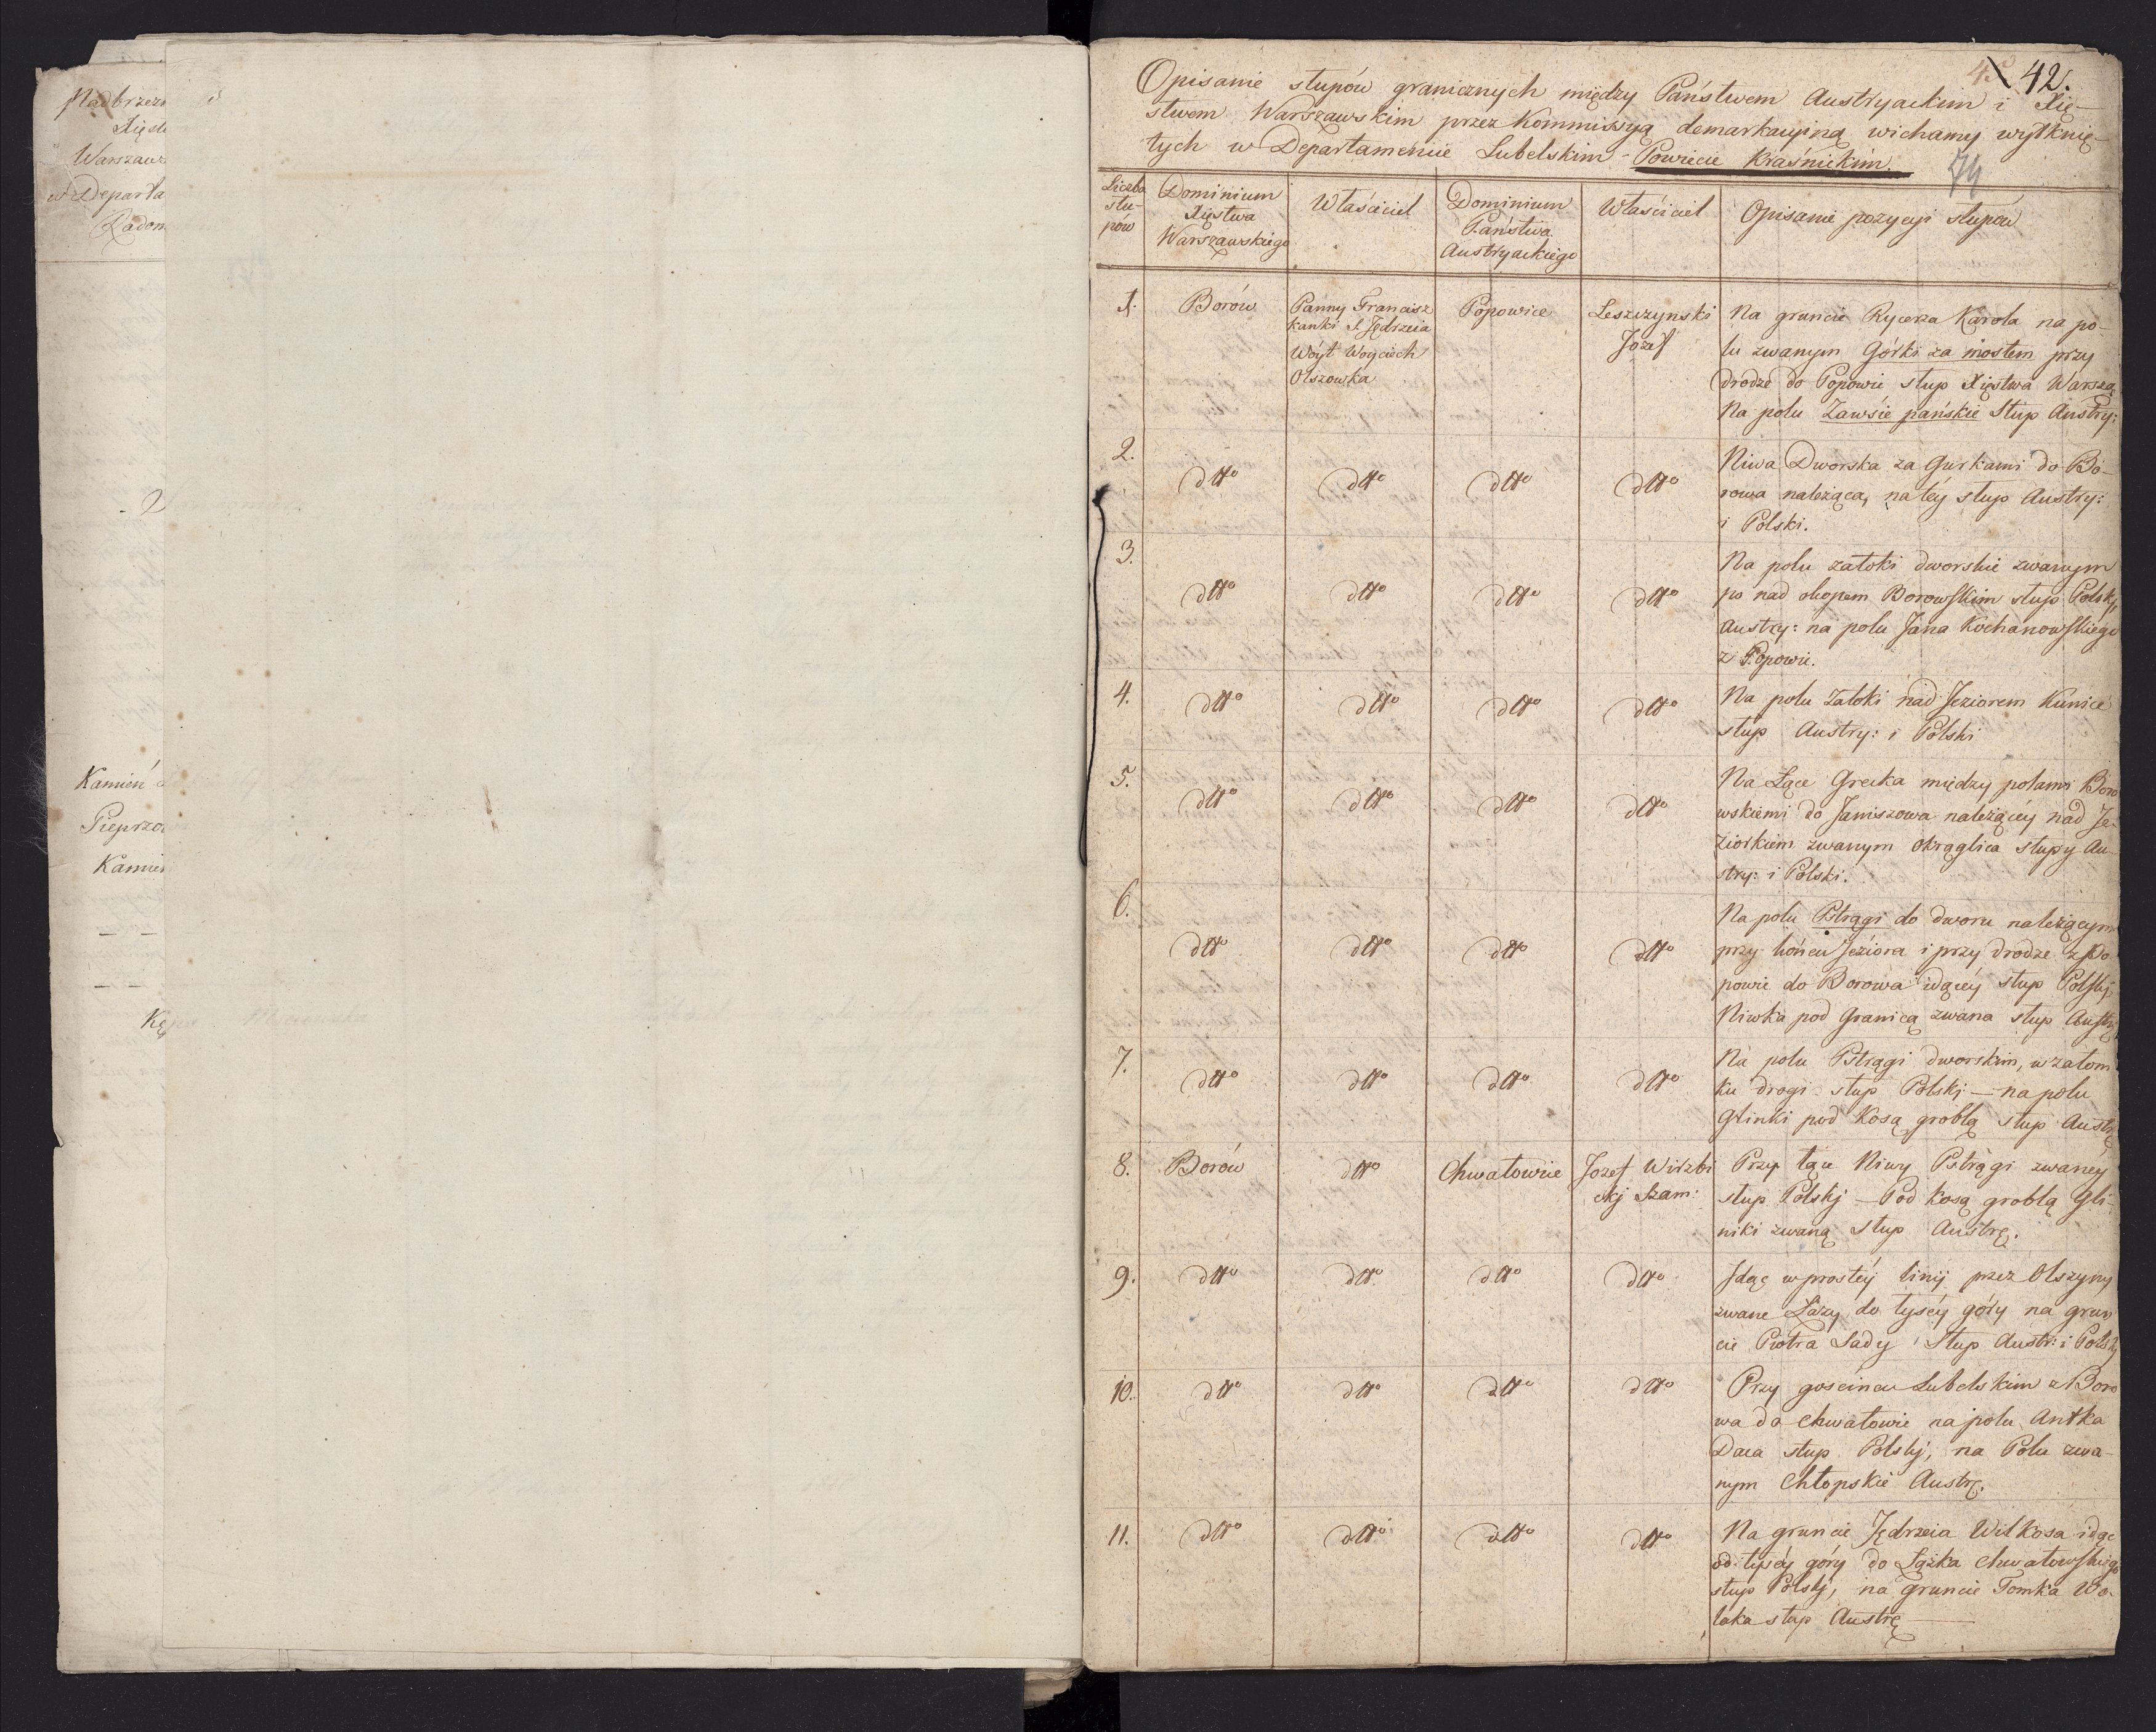 Nadbrzeż
Xięst
Warszaws
w Departa
Radom
2
Kamień
Pieprzo
Kamień
Kępa
42.
74
Opisanie słupów granicznych między Państwem Austryackim i Xię-
stwem Warszawskim przez Kommissyą demarkacyiną wiechamy wytknię-
tych w Departamencie Lubelskim - Powiecie Kraśnickim.
Liczba słu- pów | Dominium Xięstwa Warszawskiego | Właściciel | Dominium Państwa Austryackiego | Właściciel | Opisanie pozycyi słupów
1. Borów | Panny Francisz | Popowice | Leszczynski | Na gruncie Rycerza Karola na po-
kanki S. Jędrzeia | Józef | lu zwanym Górki za mostem przy
Wóyt Woyciech | drodze do Popowic słup Xięstwa Warsza
Olszowka | Na polu Zawsie pańskie Słup Austry:
2. dtto dtto dtto dtto Niwa Dworska za Gurkami do Bo-
rowa należąca, na téy słup Austry:
i Polski.
3. dtto dtto dtto dtto Na polu zatoki dworskie zwanym
po nad okopem Borowskim słup Polskj,
Austry: na polu Jana Kochanowskiego
z Popowic.
4. dtto dtto dtto dtto Na polu Zatoki nad Jeziorem Kunice
słup Austry: i Polski
5. dtto dtto dtto dtto Na Łące Grecka między polami Boro
wskiemi do Janiszowa należącéy nad Je-
ziorkiem zwanym Okrąglica słupy Au-
stry: i Polski.
6. dtto dtto dtto dtto Na polu Pstrągi do dworu należącym
przy końcu Jeziora i przy drodze z Po-
powic do Borowa idącéy słup Polskj
Niwka pod Granicą zwana słup Austrę
7. dtto dtto dtto dtto Na polu Pstrągi dworskim, w załom
ku drogi słup Polskj — na polu
Glinki pod Kosą groblą słup Austrę
8. Borów dtto Chwałowice Jozef Wirzbi Przy łące Niwy Pstrągi zwanéy
ckj Szam: słup Polskj — Pod kosą groblą Gli-
niki zwaną słup Austrę.
9. dtto dtto dtto dtto Idąc w prostéy linij przez Olszyny
zwane Łazy do łyséy góry na grun
cie Piotra Sady Słup Austr: i Polskj
10. dtto dtto dtto dtto Przy goscincu Lubelskim z Boro
wa do Chwałowic na polu Antka
Daca słup Polskj, na Polu zwa-
nym Chłopskie Austrę.
11. dtto dtto dtto dtto Na gruncie Jędrzeia Wilkosa idąc
od łyséy góry do Łążka Chwałowskiego
słup Polskj, na gruncie Tomka Wo-
laka słup Austrę